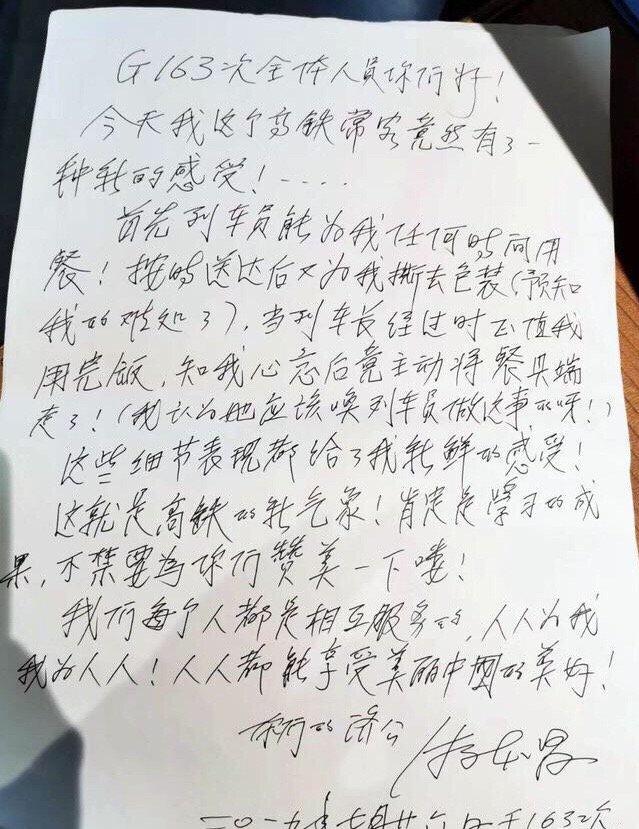 G163次全体人员你们好！
今天我这个高铁常客竟然有了一
种新的感受！····
首先列车员能为我任何时间用
餐！按时送达后又为我撕去包装(预知
我的难处了)，当列车长经过时正值我
用完饭，知我心意后竟主动将餐具端
走了！(我认为她应该唤列车员做这事的呀！)
这些细节表现都给了我新鲜的感受！
这就是高铁的新气象！肯定是学习的成
果，不禁要為你们赞美一下喽！
我们每个人都是相互服务的，人人为我
我为人人！人人都能享受美丽中國的美好！
你们的济公
游本昌
二〇一九年七月廿六日于163次